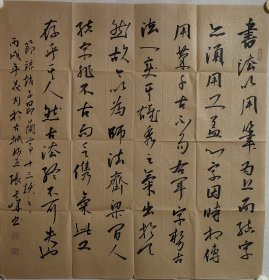 書法以用筆為上而結字
亦須用工盖結字因時相傳
用筆千古不易右軍字勢古
法一變其雄秀之氣出於天
然故古今以為師法齊梁間人
結字非不古而乏俊氣此又
存乎其人然古法終不可失也
節錄趙子昂蘭亭十三跋之
丙戌年